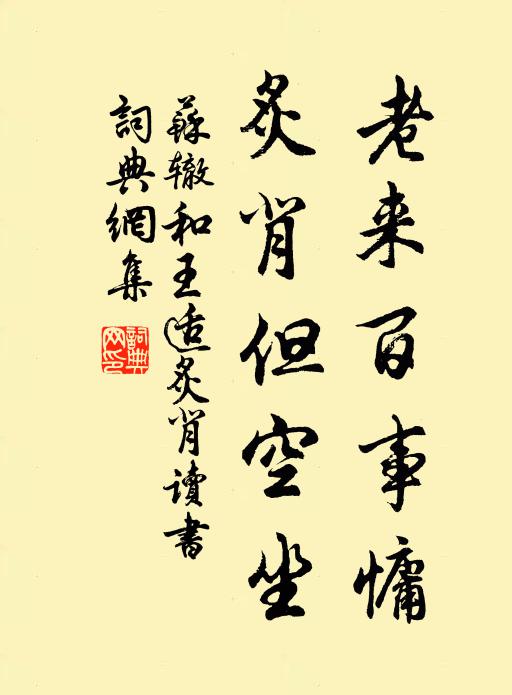 老来百事慵
炙背但空坐
蘇辙和王适炙背读書
詞典網集
詞典網印